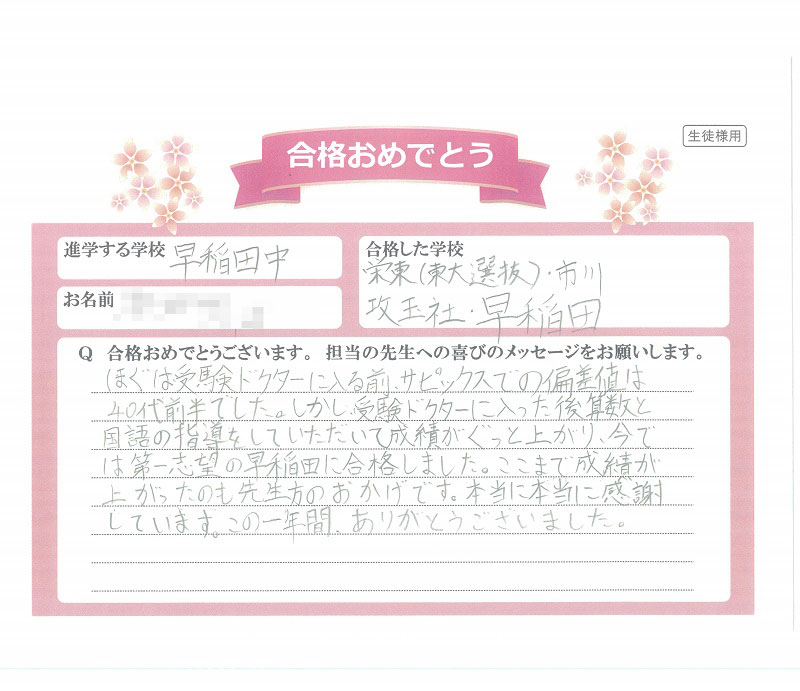 生徒様用
合格おめでとう
進学する学校 早稲田中
合格した学校
栄東(東大選抜)・市川
攻玉社・早稲田
お名前
Q 合格おめでとうございます。 担当の先生への喜びのメッセージをお願いします。
ほぐは受験ドクターに入る前、サピックスでの偏差値は
40代前半でした。しかし、受験ドクターに入った後算数と
国語の指導をしていただいて成績がぐっと上がり、今で
は第一志望の早稲田に合格しました。ここまで成績が
上がったのも先生方のおかげです。本当に本当に感謝
しています。この一年間、ありがとうございました。